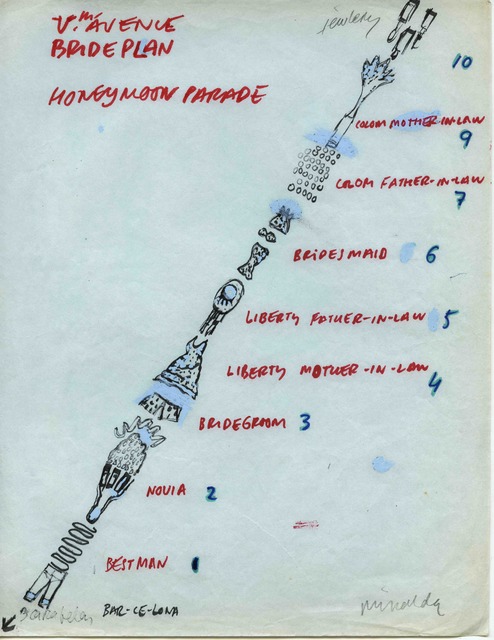 V.TH AVENUE
BRIDEPLAN
HONEYMOON PARADE
jewlery
10
COLOM MOTHER-IN-LAW
9
COLOM FATHER-IN-LAW
7
BRIDESMAID 6
LIBERTY FATHER-IN-LAW 5
LIBERTY MOTHER-IN-LAW
4
BRIDEGROOM 3
NOVIA 2
BESTMAN 1
BAR-CE-LONA
miralda